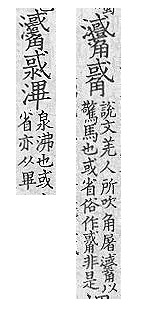 說文羌人所吹角屠以
驚馬也或省俗作非是
滭
泉沸也或
省亦从畢